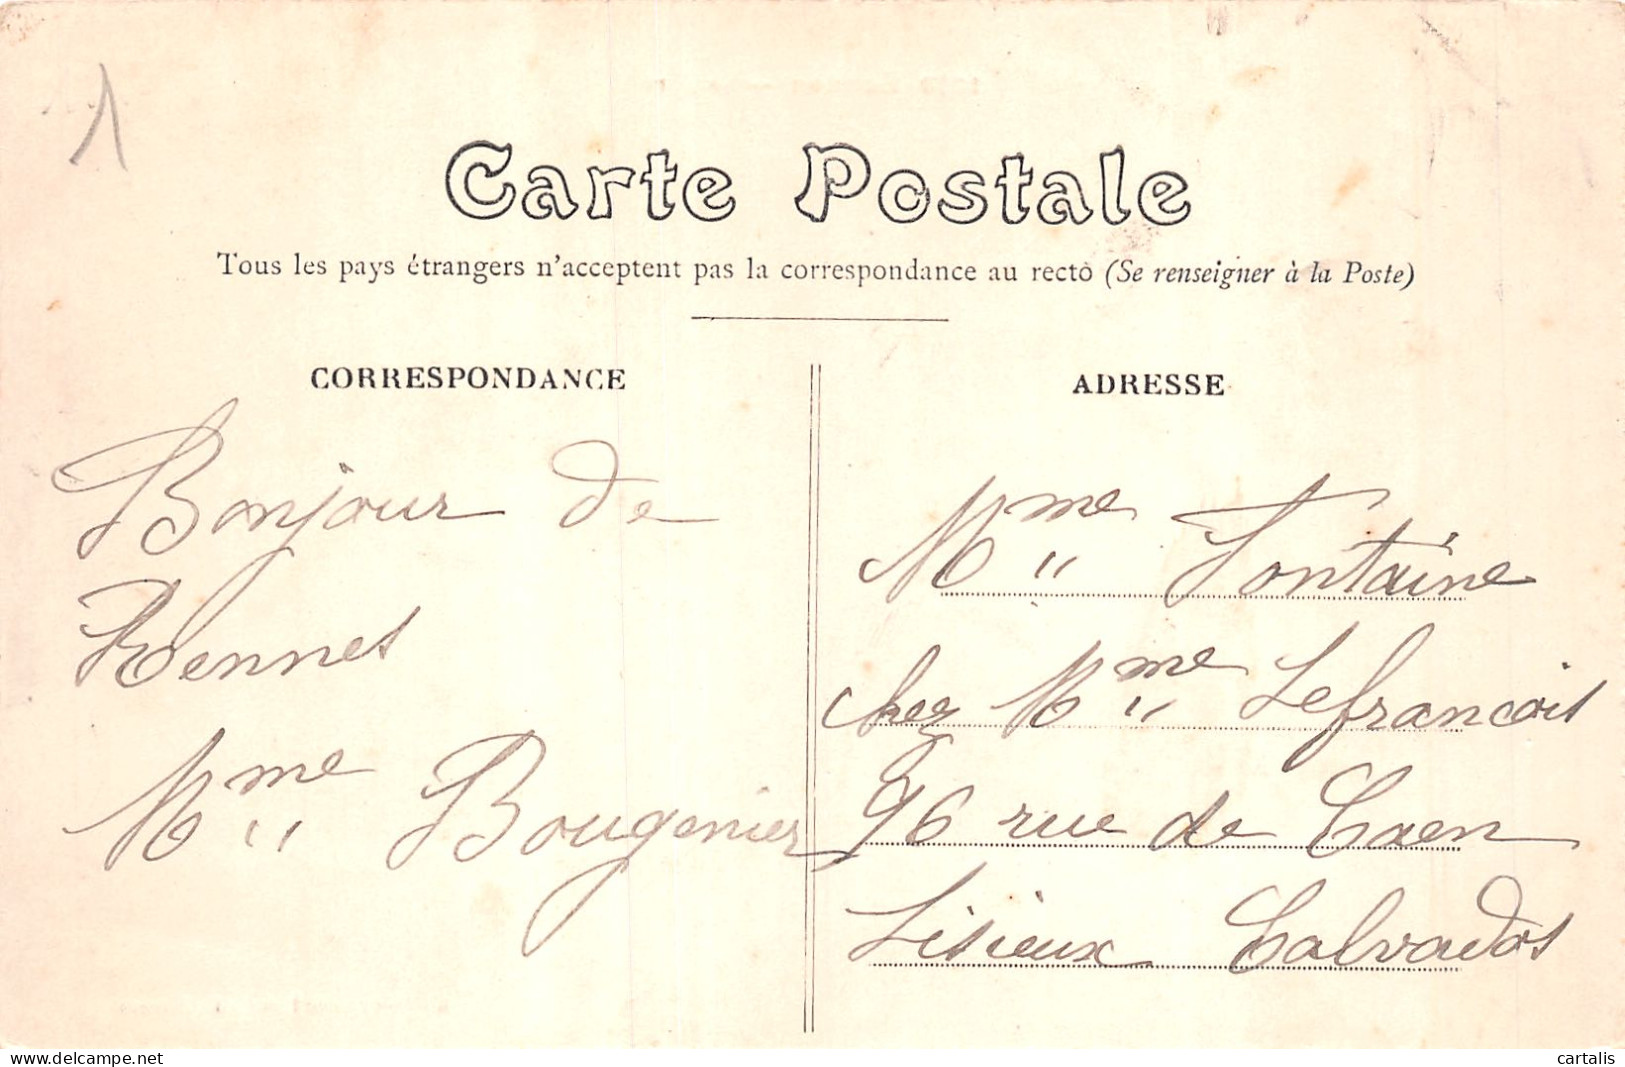 1
Carte Postale
Tous les pays étrangers n'acceptent pas la correspondance au recto (Se renseigner à la Poste)
CORRESPONDANCE
Bonjour de
Rennes
Mme Bougenier
ADRESSE
Mme Fontaine
chez Mme Lefrancois
96 rue de Caen
Lisieux Calvados
www.delcampe.net
cartalis